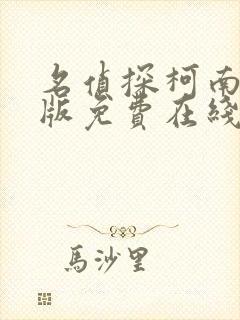 名偵探柯南
版免費在綫
馬沙里